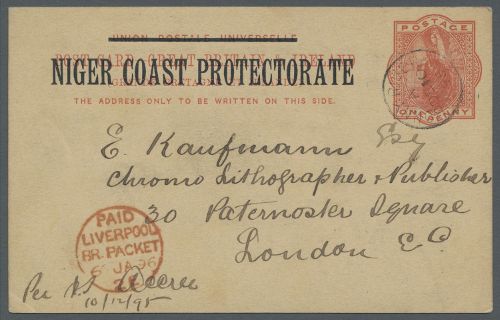 UNION POSTALE UNIVERSELLE
POST CARD GREAT BRITAIN & IRELAND
NIGER COAST PROTECTORATE
THE ADDRESS ONLY TO BE WRITTEN ON THIS SIDE.
POSTAGE
ONE PENNY
E. Kaufmann Esq
Chromo Lithographer & Publisher
30 Paternoster Square
London E.C.
PAID
LIVERPOOL
BR. PACKET
6 JA 96
Per S.S.
10/12/95